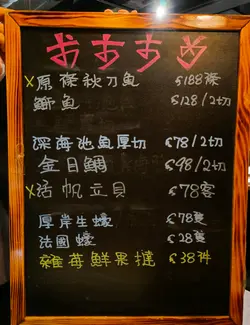 おすすめ
x原條秋刀魚 $188條
鰤魚 $128/2切
深海池魚厚切 $78/2切
金目鯛 $98/2切
x活帆立貝 $78客
厚岸生蠔 $78隻
法國蠔 $28隻
雜莓鮮果撻 $38件